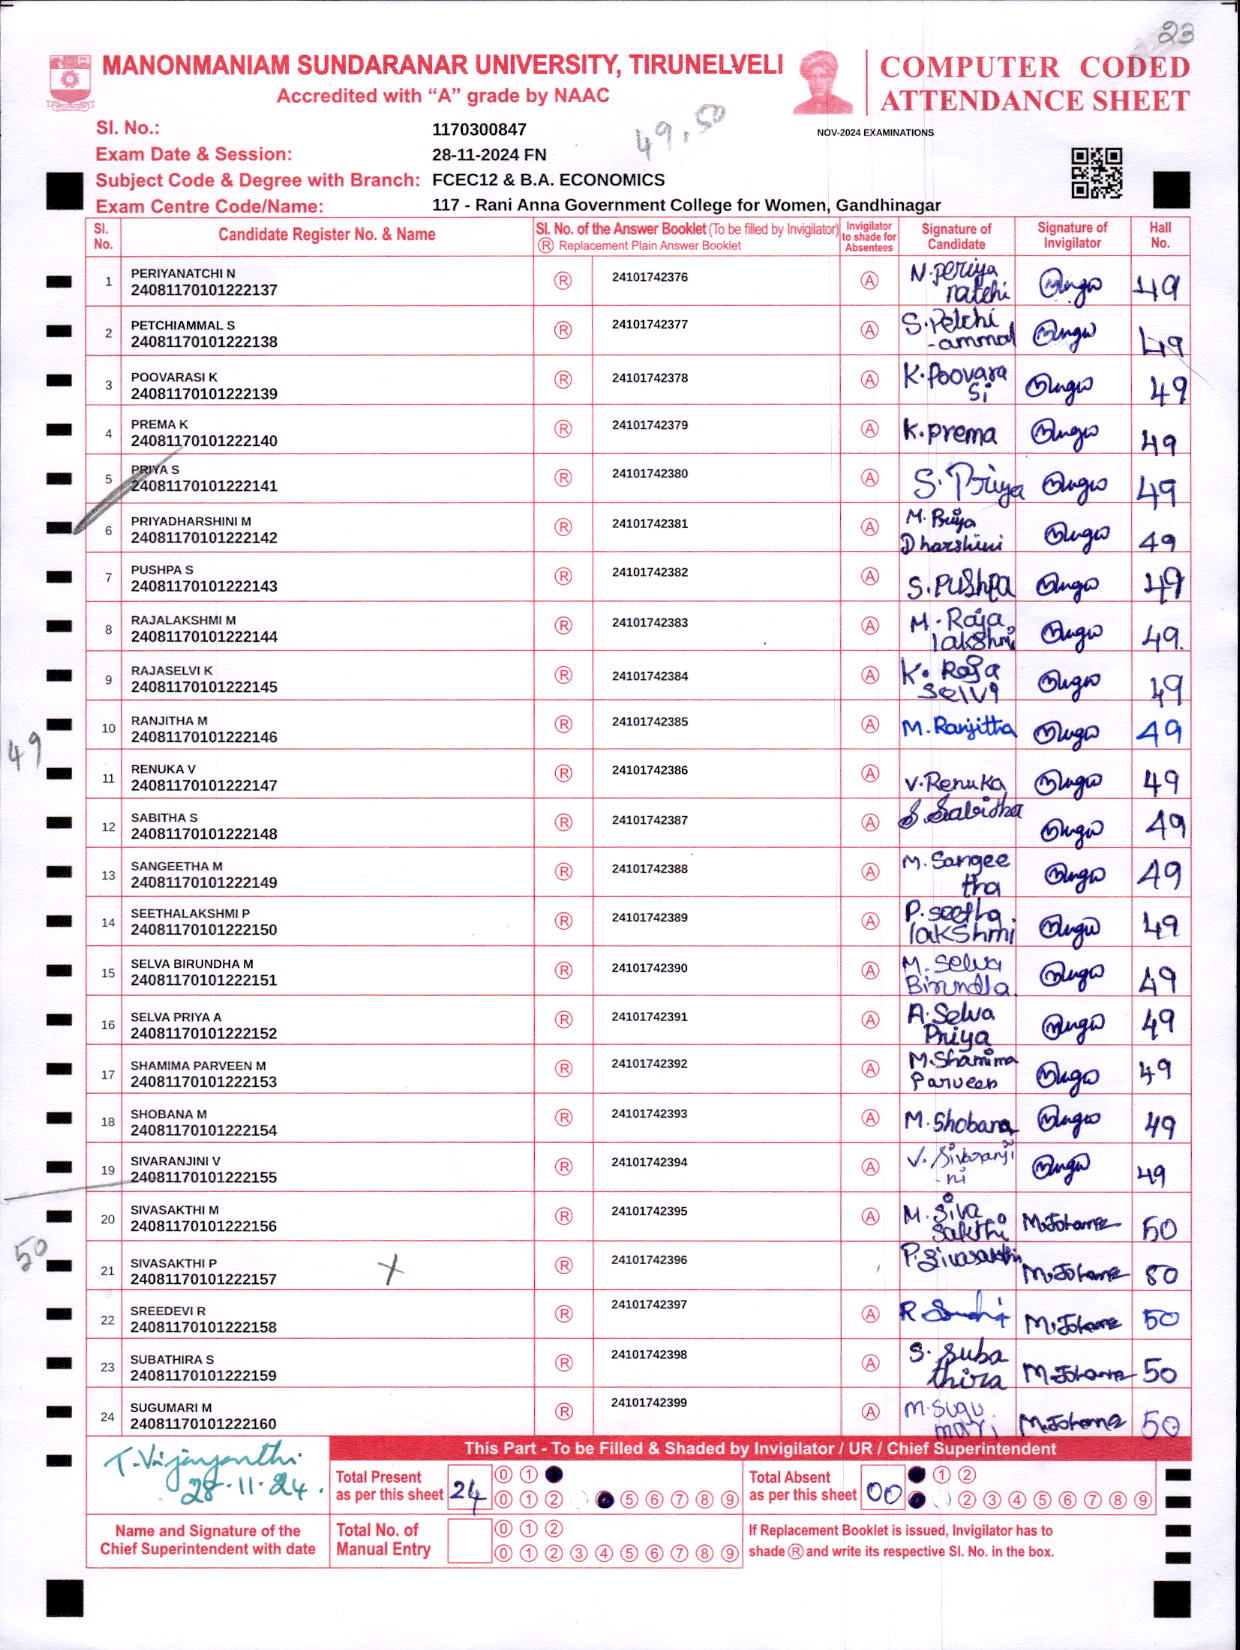 23
MANONMANIAM SUNDARANAR UNIVERSITY, TIRUNELVELI
Accredited with “A” grade by NAAC
COMPUTER CODED
ATTENDANCE SHEET
49,50
NOV-2024 EXAMINATIONS
Sl. No.: 1170300847
Exam Date & Session: 28-11-2024 FN
Subject Code & Degree with Branch: FCEC12 & B.A. ECONOMICS
Exam Centre Code/Name: 117 - Rani Anna Government College for Women, Gandhinagar
Sl. No. Candidate Register No. & Name Sl. No. of the Answer Booklet (To be filled by Invigilator) Ⓡ Replacement Plain Answer Booklet Invigilator to shade for Absentees Signature of Candidate Signature of Invigilator Hall No.
1 PERIYANATCHI N 24081170101222137 Ⓡ 24101742376 Ⓐ N.Periya natchi 49
2 PETCHIAMMAL S 24081170101222138 Ⓡ 24101742377 Ⓐ S.Petchi -ammal 49
3 POOVARASI K 24081170101222139 Ⓡ 24101742378 Ⓐ K.Poovara si 49
4 PREMA K 24081170101222140 Ⓡ 24101742379 Ⓐ K.prema 49
5 PRIYA S 24081170101222141 Ⓡ 24101742380 Ⓐ S.Priya 49
6 PRIYADHARSHINI M 24081170101222142 Ⓡ 24101742381 Ⓐ M.Priya Dharshini 49
7 PUSHPA S 24081170101222143 Ⓡ 24101742382 Ⓐ S.PUShpa 49
8 RAJALAKSHMI M 24081170101222144 Ⓡ 24101742383 Ⓐ M.Raja lakshmi 49.
9 RAJASELVI K 24081170101222145 Ⓡ 24101742384 Ⓐ K.Raja selvi 49
10 RANJITHA M 24081170101222146 Ⓡ 24101742385 Ⓐ M.Ranjitha 49
49
11 RENUKA V 24081170101222147 Ⓡ 24101742386 Ⓐ V.Renuka 49
12 SABITHA S 24081170101222148 Ⓡ 24101742387 Ⓐ S.Sabitha 49
13 SANGEETHA M 24081170101222149 Ⓡ 24101742388 Ⓐ M.Sangee tha 49
14 SEETHALAKSHMI P 24081170101222150 Ⓡ 24101742389 Ⓐ P.seetha lakshmi 49
15 SELVA BIRUNDHA M 24081170101222151 Ⓡ 24101742390 Ⓐ M.Selva Birundha 49
16 SELVA PRIYA A 24081170101222152 Ⓡ 24101742391 Ⓐ A.Selva Priya 49
17 SHAMIMA PARVEEN M 24081170101222153 Ⓡ 24101742392 Ⓐ M.Shamima Parveen 49
18 SHOBANA M 24081170101222154 Ⓡ 24101742393 Ⓐ M.Shobana 49
19 SIVARANJINI V 24081170101222155 Ⓡ 24101742394 Ⓐ V.Sivaranji -ni 49
20 SIVASAKTHI M 24081170101222156 Ⓡ 24101742395 Ⓐ M.Siva sakthi 50
50
21 SIVASAKTHI P 24081170101222157 X Ⓡ 24101742396 P.Sivasakthi 50
22 SREEDEVI R 24081170101222158 Ⓡ 24101742397 Ⓐ 50
23 SUBATHIRA S 24081170101222159 Ⓡ 24101742398 Ⓐ S.Suba thira 50
24 SUGUMARI M 24081170101222160 Ⓡ 24101742399 Ⓐ M.Sugu mari 50
This Part - To be Filled & Shaded by Invigilator / UR / Chief Superintendent
T.Vijayanthi
28.11.24.
Name and Signature of the
Chief Superintendent with date
Total Present
as per this sheet 24
0 1
0 1 2 5 6 7 8 9
Total Absent
as per this sheet 00
1 2
2 3 4 5 6 7 8 9
Total No. of
Manual Entry
0 1 2
0 1 2 3 4 5 6 7 8 9
If Replacement Booklet is issued, Invigilator has to
shade Ⓡ and write its respective Sl. No. in the box.